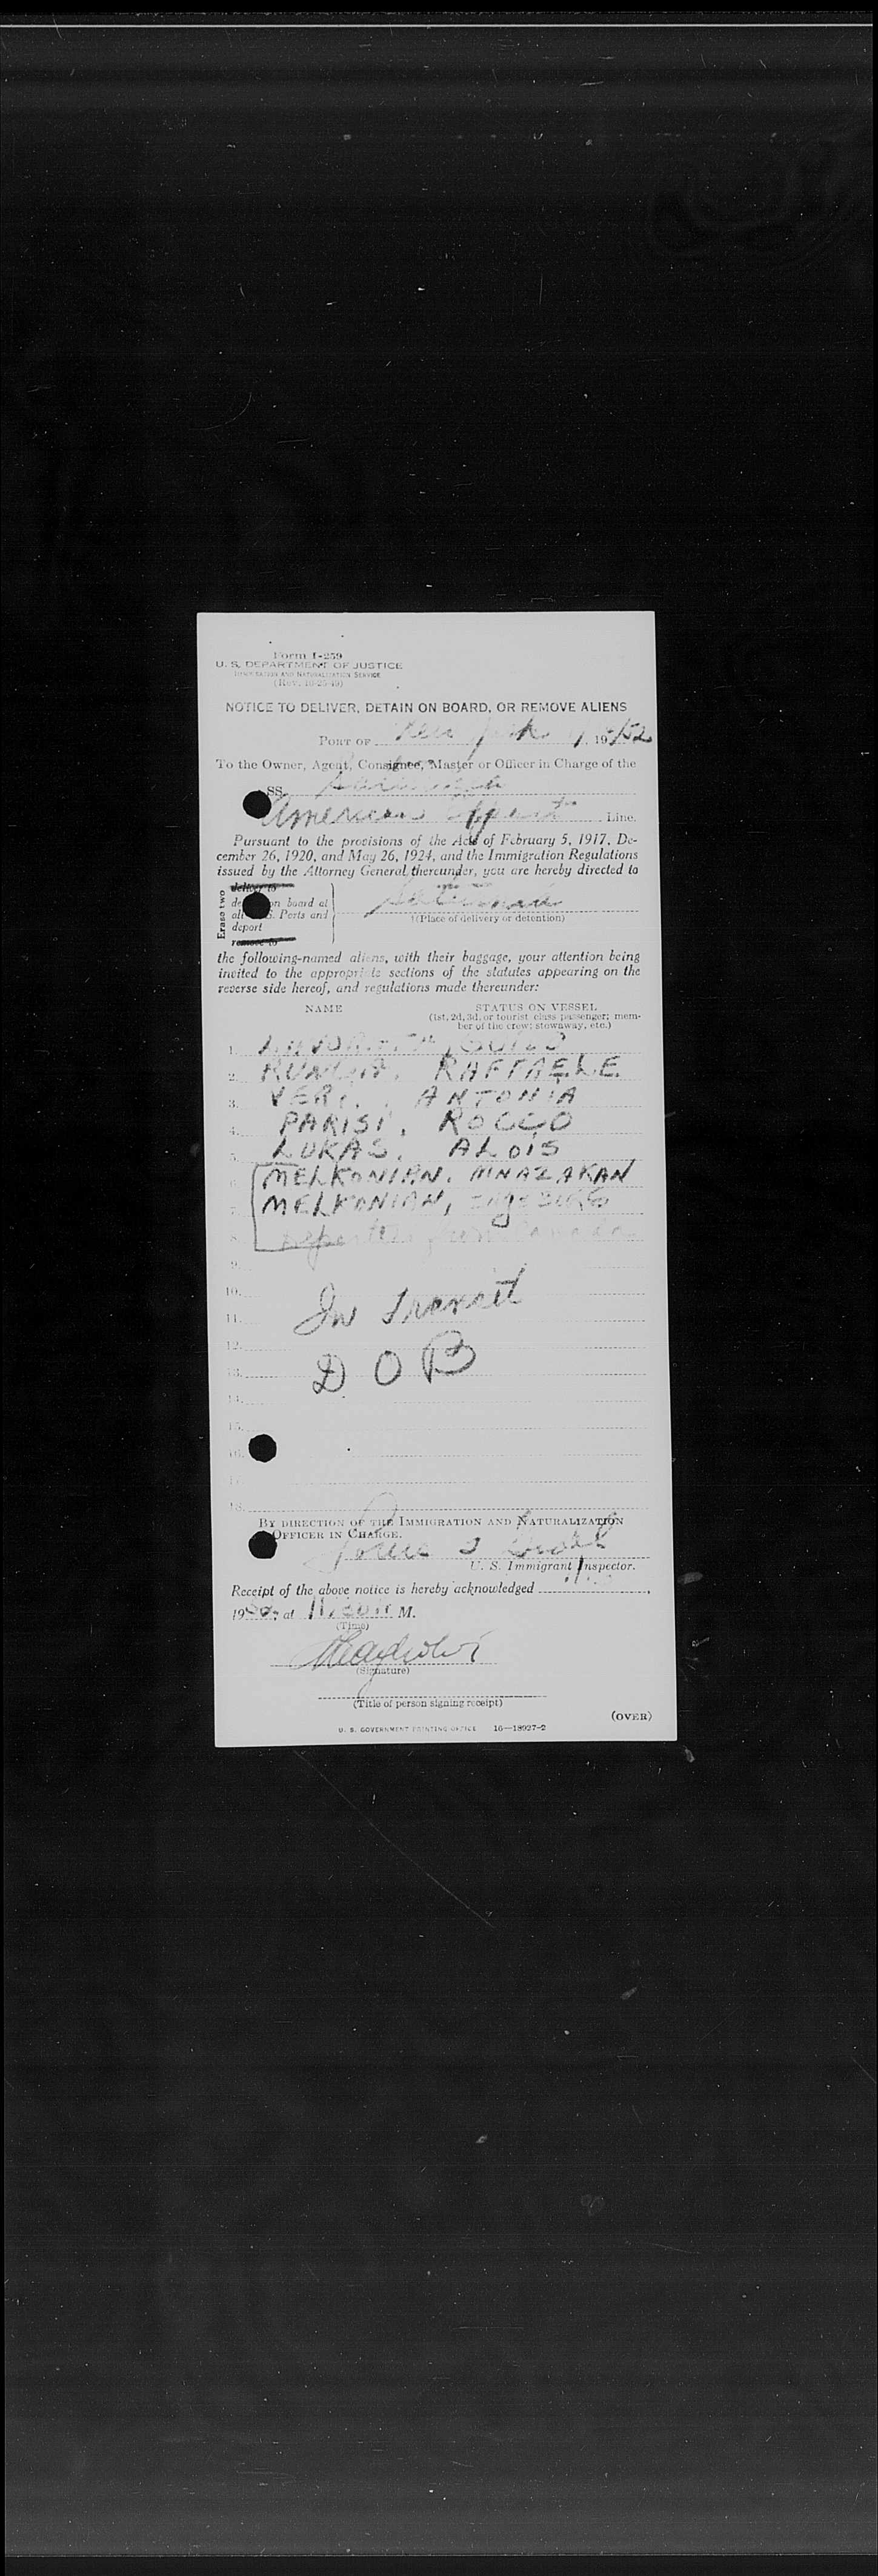 Form I-259
U. S. DEPARTMENT OF JUSTICE
IMMIGRATION AND NATURALIZATION SERVICE
(Rev. 10-25-49)
NOTICE TO DELIVER, DETAIN ON BOARD, OR REMOVE ALIENS
PORT OF New York 19 /52
To the Owner, Agent, Consignee, Master or Officer in Charge of the
SS.
American Export Line.
Pursuant to the provisions of the Acts of February 5, 1917, De-
cember 26, 1920, and May 26, 1924, and the Immigration Regulations
issued by the Attorney General thereunder, you are hereby directed to
Erase two
deliver to
on board at
Ports and
deport
remove to
(Place of delivery or detention)
the following-named aliens, with their baggage, your attention being
invited to the appropriate sections of the statutes appearing on the
reverse side hereof, and regulations made thereunder:
NAME STATUS ON VESSEL
(1st, 2d, 3d, or tourist class passenger; mem-
ber of the crew; stowaway, etc.)
1. GUIDO
2. RAFFAELE
3. ANTONIA
4. PARISI, ROCCO
5. LUKAS, ALOIS
6. MELKONIAN, MNAZAKAN
7. MELKONIAN,
8. from Canada
9.
10.
11. In Transit
12.
13. D O B
14.
15.
16.
17.
18.
BY DIRECTION OF THE IMMIGRATION AND NATURALIZATION
OFFICER IN CHARGE.
U. S. Immigrant Inspector.
Receipt of the above notice is hereby acknowledged
19 , at M.
(Time)
(Signature)
(Title of person signing receipt)
(OVER)
U. S. GOVERNMENT PRINTING OFFICE 16—18927-2